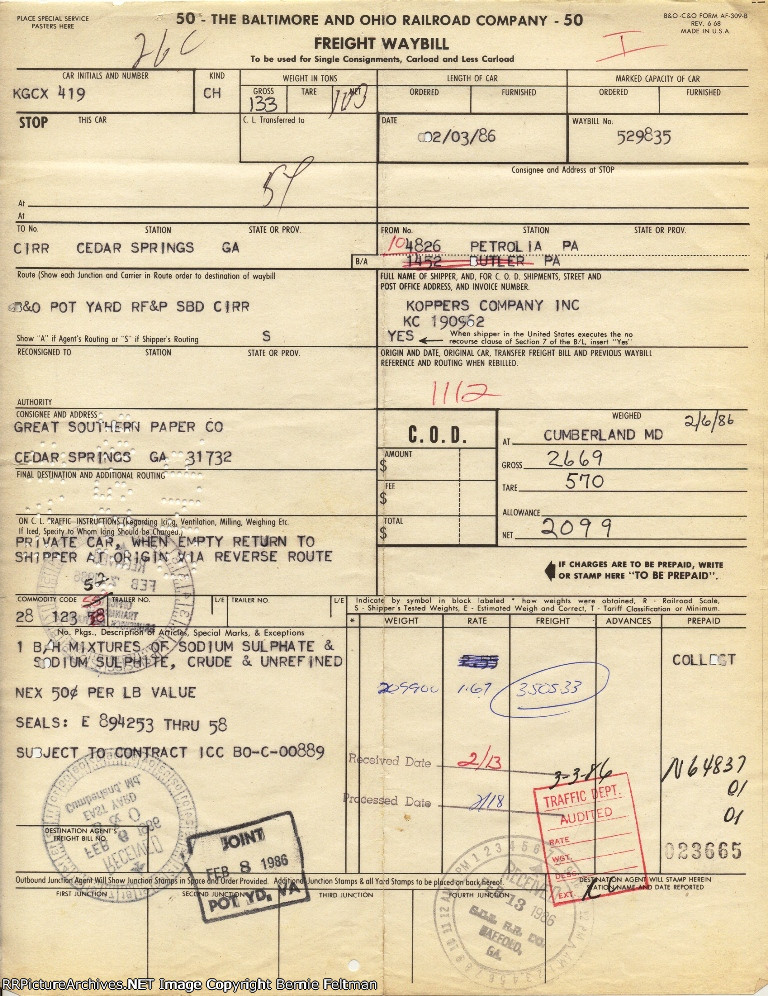 PLACE SPECIAL SERVICE
PASTERS HERE
50 - THE BALTIMORE AND OHIO RAILROAD COMPANY - 50
B&O -C&O FORM AF-309-B
REV. 6-68
MADE IN U.S.A
26C
FREIGHT WAYBILL
To be used for Single Consignments, Carload and Less Carload
I
CAR INITIALS AND NUMBER
KIND
WEIGHT IN TONS
LENGTH OF CAR
MARKED CAPACITY OF CAR
KGCX 419
CH
GROSS
TARE
NET
ORDERED
FURNISHED
ORDERED
FURNISHED
133
103
STOP
THIS CAR
C. L. Transferred to
DATE
02/03/86
WAYBILL No.
529835
Consignee and Address at STOP
54
At
At
TO No.
STATION
STATE OR PROV.
FROM No.
STATION
STATE OR PROV.
CIRR CEDAR SPRINGS GA
10 4826 PETROLIA PA
B/A
1452 BUTLER PA
Route (Show each Junction and Carrier in Route order to destination of waybill
FULL NAME OF SHIPPER, AND, FOR C. O. D. SHIPMENTS, STREET AND
POST OFFICE ADDRESS, AND INVOICE NUMBER.
B&O POT YARD RF&P SBD CIRR
KOPPERS COMPANY INC
KC 190962
Show "A" if Agent's Routing or "S" if Shipper's Routing
S
YES
When shipper in the United States executes the no
recourse clause of Section 7 of the B/L, insert "Yes"
RECONSIGNED TO
STATION
STATE OR PROV.
ORIGIN AND DATE, ORIGINAL CAR, TRANSFER FREIGHT BILL AND PREVIOUS WAYBILL
REFERENCE AND ROUTING WHEN REBILLED.
1112
AUTHORITY
CONSIGNEE AND ADDRESS
GREAT SOUTHERN PAPER CO
CEDAR SPRINGS GA 31732
C.O.D.
AMOUNT
$
FEE
$
TOTAL
$
WEIGHED
2/6/86
AT
CUMBERLAND MD
GROSS
2669
TARE
570
ALLOWANCE
NET
2099
FINAL DESTINATION AND ADDITIONAL ROUTING
ON C. L. TRAFFIC-INSTRUCTIONS (Regarding Icing, Ventilation, Milling, Weighing Etc.
If Iced, Specify to Whom Icing Should be Charged.)
PRIVATE CAR, WHEN EMPTY RETURN TO
SHIPPER AT ORIGIN VIA REVERSE ROUTE
IF CHARGES ARE TO BE PREPAID, WRITE
OR STAMP HERE "TO BE PREPAID".
COMMODITY CODE
TRAILER NO.
L/E
TRAILER NO.
L/E
28 123
Indicate by symbol in block labeled * how weights were obtained, R - Railroad Scale,
S - Shipper's Tested Weights, E - Estimated Weigh and Correct, T - Tariff Classification or Minimum.
No. Pkgs., Description of Articles, Special Marks, & Exceptions
*
WEIGHT
RATE
FREIGHT
ADVANCES
PREPAID
1 B/H MIXTURES OF SODIUM SULPHATE &
SODIUM SULPHITE, CRUDE & UNREFINED
COLLECT
209900
1.67
3505.33
NEX 50¢ PER LB VALUE
SEALS: E 894253 THRU 58
SUBJECT TO CONTRACT ICC BO-C-00889
Received Date
2/13
3-3-86
N64837
01
01
Processed Date
2/18
TRAFFIC DEPT.
AUDITED
RATE
WGT.
DESC
EXT.
023665
RECEIVED
FEB 8 1986
DESTINATION AGENT'S
FREIGHT BILL NO.
JOINT
FEB 8 1986
POT YD. VA
RECEIVED
FEB 13 1986
S.B.D. R.R. CO.
SAFFOLD,
GA.
Outbound Junction Agent Will Show Junction Stamps in Space and Order Provided. Additional Junction Stamps & all Yard Stamps to be placed on back hereof.
DESTINATION AGENT WILL STAMP HEREIN
STATION NAME AND DATE REPORTED
FIRST JUNCTION
SECOND JUNCTION
THIRD JUNCTION
FOURTH JUNCTION
RRPictureArchives.NET Image Copyright Bernie Feltman